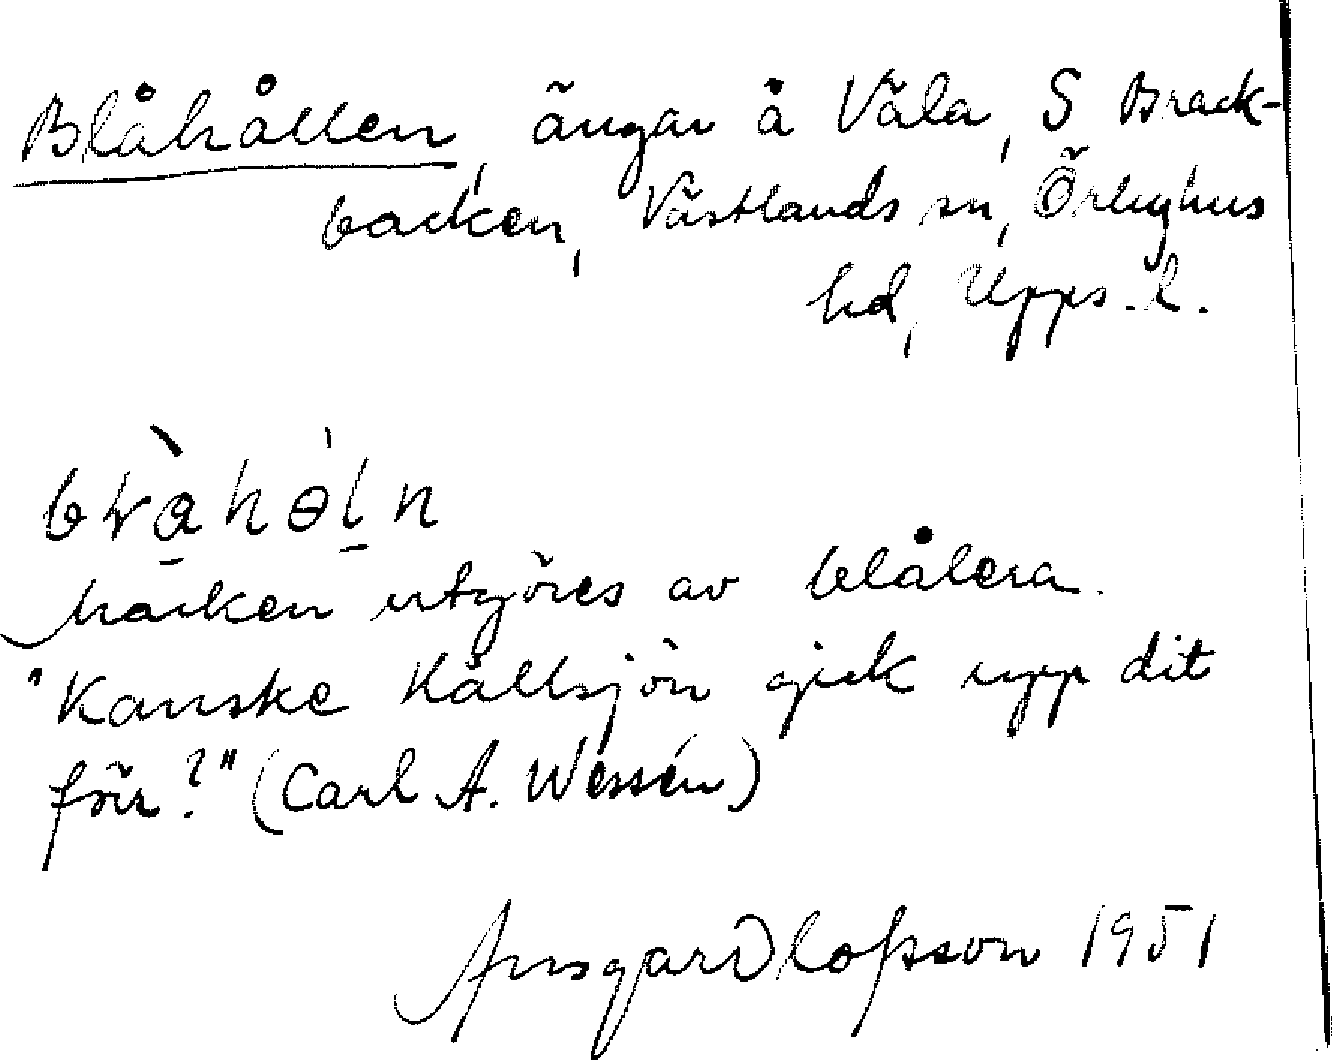 Blåhållen, ängar å Väla, S Brack-
backen, Västlands sn, Örbyhus
hd, Upps. l.
marken utgöres av blålera.
"Kanske Hållsjön gick upp dit
förr?" (Carl A. Wessén)
Ansgar Olofsson 1951